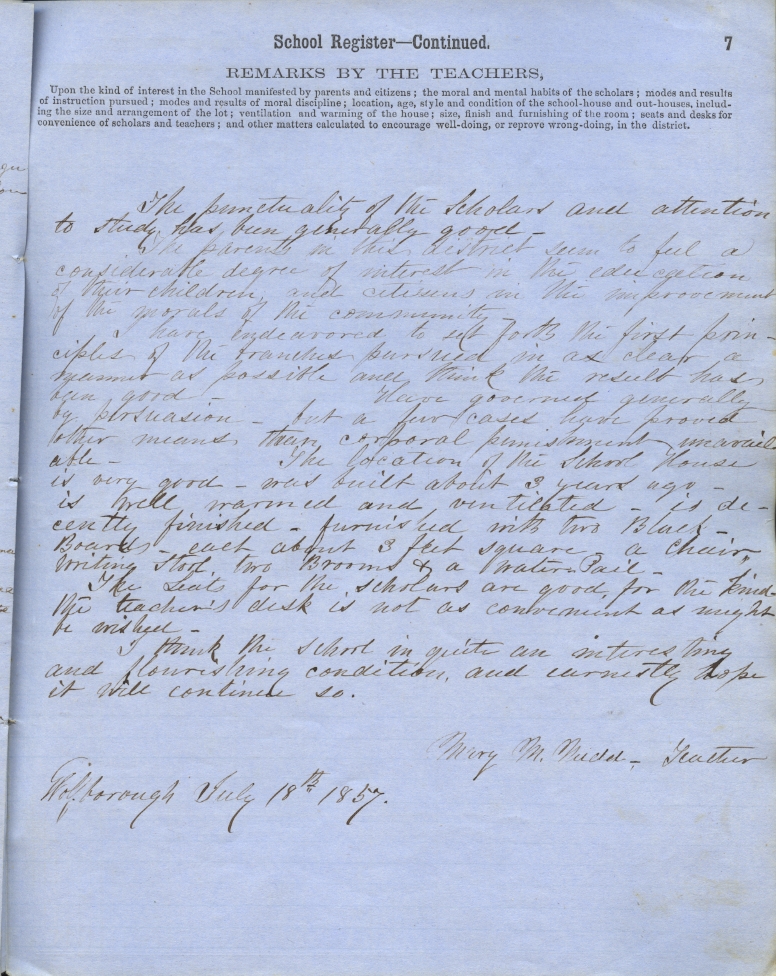 School Register—Continued. 7
REMARKS BY THE TEACHERS,
Upon the kind of interest in the School manifested by parents and citizens; the moral and mental habits of the scholars; modes and results
of instruction pursued; modes and results of moral discipline; location, age, style and condition of the school-house and out-houses, includ-
ing the size and arrangement of the lot; ventilation and warming of the house; size, finish and furnishing of the room; seats and desks for
convenience of scholars and teachers; and other matters calculated to encourage well-doing, or reprove wrong-doing, in the district.
The punctuality of the Scholars and attention
to study, has been generally good -
The parents in this district seem to feel a
considerable degree of interest in the education
of their children, and citizens in the improvement
of the morals of the community -
I have endeavored to set forth the first prin-
ciples of the branches pursued in as clear a
manner as possible and think the result has
been good - Have governed generally
by persuasion - but a few cases have proved
other means than corporal punishment unavail
able - The location of the School House
is very good - was built about 3 years ago -
is well warmed and ventilated - is de-
cently finished - furnished with two Black-
Boards - each about 3 feet square, a chair,
Writing Stool, two Brooms & a Water Pail -
The Seats for the scholars are good, for the kind -
the teacher's desk is not as convenient as might
be wished -
I think the School in quite an interesting
and flourishing condition, and earnestly hope
it will continue so.
Mary M. Nudd - Teacher
Wolfborough July 18th 1857.